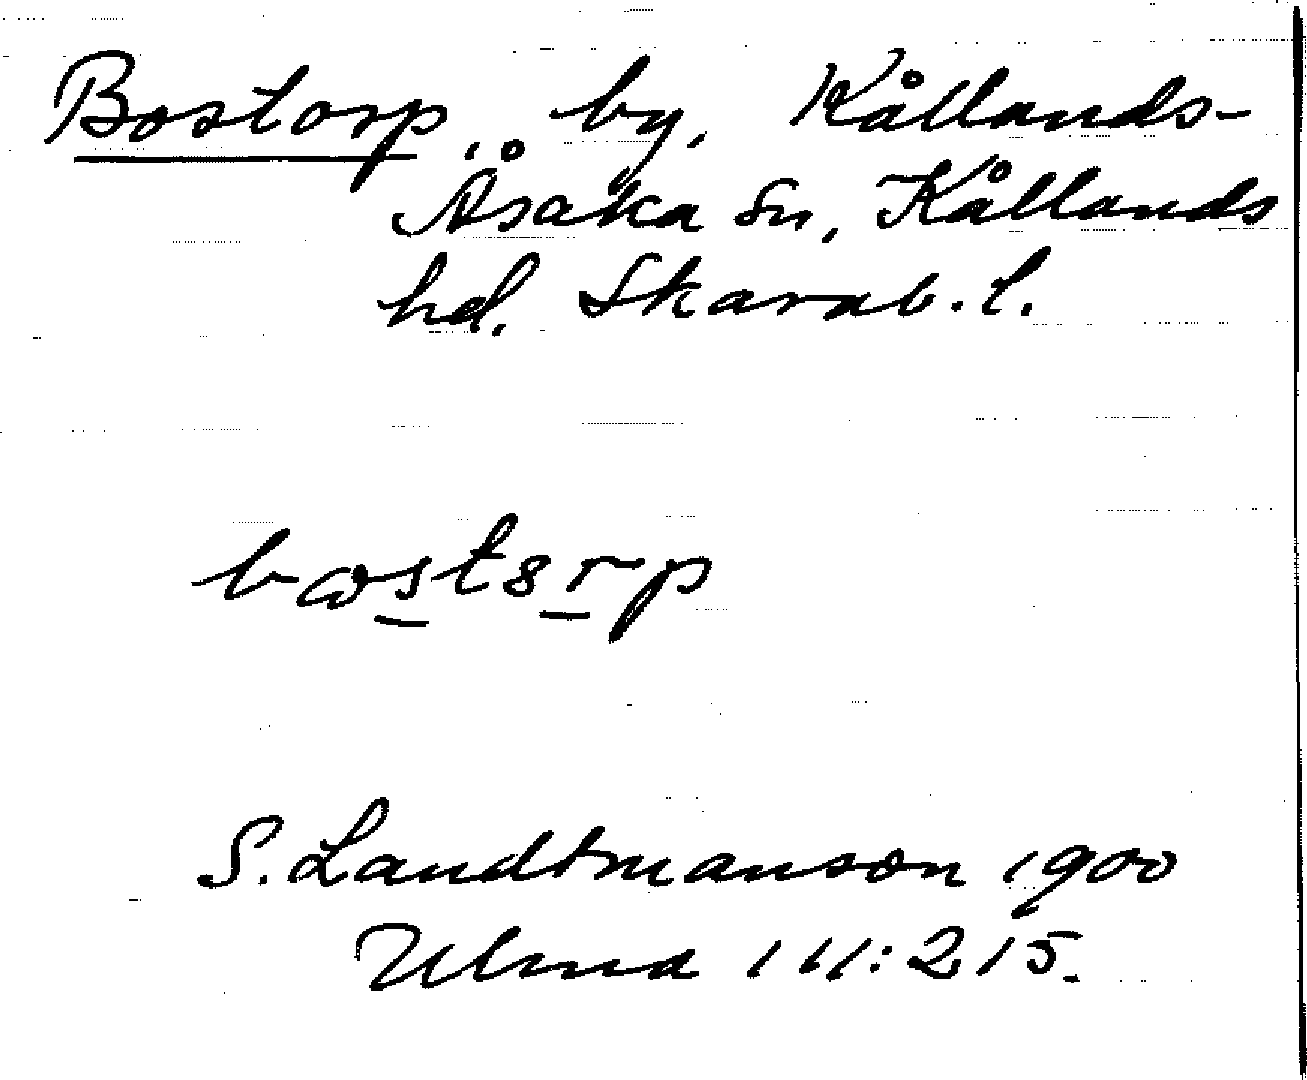 Bostorp, by, Kållands-
Åsaka sn, Kållands
hd. Skarab. l.
S. Landtmanson 1900
Ulma 111:215.